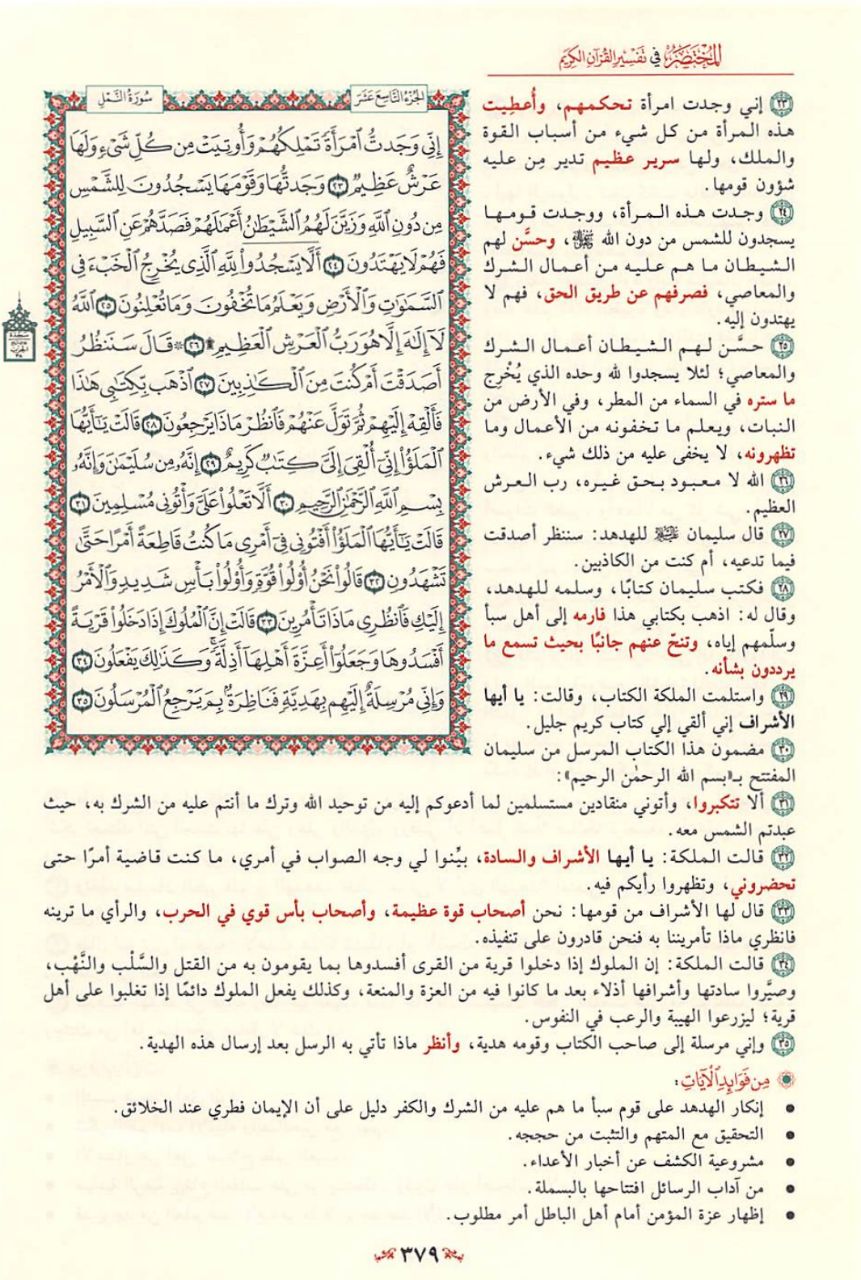 المختصر في تفسير القرآن الكريم
الجزء التاسع عشر
سورة النمل
إِنِّي وَجَدتُّ ٱمْرَأَةً تَمْلِكُهُمْ وَأُوتِيَتْ مِن كُلِّ شَيْءٍ وَلَهَا
عَرْشٌ عَظِيمٌ ٢٣ وَجَدتُّهَا وَقَوْمَهَا يَسْجُدُونَ لِلشَّمْسِ
مِن دُونِ ٱللَّهِ وَزَيَّنَ لَهُمُ ٱلشَّيْطَٰنُ أَعْمَٰلَهُمْ فَصَدَّهُمْ عَنِ ٱلسَّبِيلِ
فَهُمْ لَا يَهْتَدُونَ ٢٤ أَلَّا يَسْجُدُوا۟ لِلَّهِ ٱلَّذِي يُخْرِجُ ٱلْخَبْءَ فِي
ٱلسَّمَٰوَٰتِ وَٱلْأَرْضِ وَيَعْلَمُ مَا تُخْفُونَ وَمَا تُعْلِنُونَ ٢٥ ٱللَّهُ
لَآ إِلَٰهَ إِلَّا هُوَ رَبُّ ٱلْعَرْشِ ٱلْعَظِيمِ۩ ٢٦ ۞ قَالَ سَنَنظُرُ
أَصَدَقْتَ أَمْ كُنتَ مِنَ ٱلْكَٰذِبِينَ ٢٧ ٱذْهَب بِّكِتَٰبِي هَٰذَا
فَأَلْقِهْ إِلَيْهِمْ ثُمَّ تَوَلَّ عَنْهُمْ فَٱنظُرْ مَاذَا يَرْجِعُونَ ٢٨ قَالَتْ يَٰٓأَيُّهَا
ٱلْمَلَؤُا۟ إِنِّيٓ أُلْقِيَ إِلَيَّ كِتَٰبٌ كَرِيمٌ ٢٩ إِنَّهُۥ مِن سُلَيْمَٰنَ وَإِنَّهُۥ
بِسْمِ ٱللَّهِ ٱلرَّحْمَٰنِ ٱلرَّحِيمِ ٣٠ أَلَّا تَعْلُوا۟ عَلَيَّ وَأْتُونِي مُسْلِمِينَ ٣١
قَالَتْ يَٰٓأَيُّهَا ٱلْمَلَؤُا۟ أَفْتُونِي فِيٓ أَمْرِي مَا كُنتُ قَاطِعَةً أَمْرًا حَتَّىٰ
تَشْهَدُونِ ٣٢ قَالُوا۟ نَحْنُ أُو۟لُوا۟ قُوَّةٍ وَأُو۟لُوا۟ بَأْسٍ شَدِيدٍ وَٱلْأَمْرُ
إِلَيْكِ فَٱنظُرِي مَاذَا تَأْمُرِينَ ٣٣ قَالَتْ إِنَّ ٱلْمُلُوكَ إِذَا دَخَلُوا۟ قَرْيَةً
أَفْسَدُوهَا وَجَعَلُوٓا۟ أَعِزَّةَ أَهْلِهَآ أَذِلَّةً ۖ وَكَذَٰلِكَ يَفْعَلُونَ ٣٤
وَإِنِّي مُرْسِلَةٌ إِلَيْهِم بِهَدِيَّةٍ فَنَاظِرَةٌۢ بِمَ يَرْجِعُ ٱلْمُرْسَلُونَ ٣٥
٢٣ إني وجدت امرأة تحكمهم، وأُعطِيت
هذه المرأة من كل شيء من أسباب القوة
والملك، ولها سرير عظيم تدير مِن عليه
شؤون قومها.
٢٤ وجدت هذه المرأة، ووجدت قومها
يسجدون للشمس من دون الله ﷻ، وحسَّن لهم
الشيطان ما هم عليه من أعمال الشرك
والمعاصي، فصرفهم عن طريق الحق، فهم لا
يهتدون إليه.
٢٥ حسَّن لهم الشيطان أعمال الشرك
والمعاصي؛ لئلا يسجدوا لله وحده الذي يُخْرِج
ما ستره في السماء من المطر، وفي الأرض من
النبات، ويعلم ما تخفونه من الأعمال وما
تظهرونه، لا يخفى عليه من ذلك شيء.
٢٦ الله لا معبود بحق غيره، رب العرش
العظيم.
٢٧ قال سليمان ﵇ للهدهد: سننظر أصدقت
فيما تدعيه، أم كنت من الكاذبين.
٢٨ فكتب سليمان كتابًا، وسلمه للهدهد،
وقال له: اذهب بكتابي هذا فارمه إلى أهل سبأ
وسلّمهم إياه، وتنحّ عنهم جانبًا بحيث تسمع ما
يرددون بشأنه.
٢٩ واستلمت الملكة الكتاب، وقالت: يا أيها
الأشراف إني ألقي إلي كتاب كريم جليل.
٣٠ مضمون هذا الكتاب المرسل من سليمان
المفتتح بـ«بسم الله الرحمٰن الرحيم»:
٣١ ألا تتكبروا، وأتوني منقادين مستسلمين لما أدعوكم إليه من توحيد الله وترك ما أنتم عليه من الشرك به، حيث
عبدتم الشمس معه.
٣٢ قالت الملكة: يا أيها الأشراف والسادة، بيِّنوا لي وجه الصواب في أمري، ما كنت قاضية أمرًا حتى
تحضروني، وتظهروا رأيكم فيه.
٣٣ قال لها الأشراف من قومها: نحن أصحاب قوة عظيمة، وأصحاب بأس قوي في الحرب، والرأي ما ترينه
فانظري ماذا تأمريننا به فنحن قادرون على تنفيذه.
٣٤ قالت الملكة: إن الملوك إذا دخلوا قرية من القرى أفسدوها بما يقومون به من القتل والسَّلْب والنَّهْب،
وصيَّروا سادتها وأشرافها أذلاء بعد ما كانوا فيه من العزة والمنعة، وكذلك يفعل الملوك دائمًا إذا تغلبوا على أهل
قرية؛ ليزرعوا الهيبة والرعب في النفوس.
٣٥ وإني مرسلة إلى صاحب الكتاب وقومه هدية، وأنظر ماذا تأتي به الرسل بعد إرسال هذه الهدية.
من فوائد الآيات:
• إنكار الهدهد على قوم سبأ ما هم عليه من الشرك والكفر دليل على أن الإيمان فطري عند الخلائق.
• التحقيق مع المتهم والتثبت من حججه.
• مشروعية الكشف عن أخبار الأعداء.
• من آداب الرسائل افتتاحها بالبسملة.
• إظهار عزة المؤمن أمام أهل الباطل أمر مطلوب.
٣٧٩